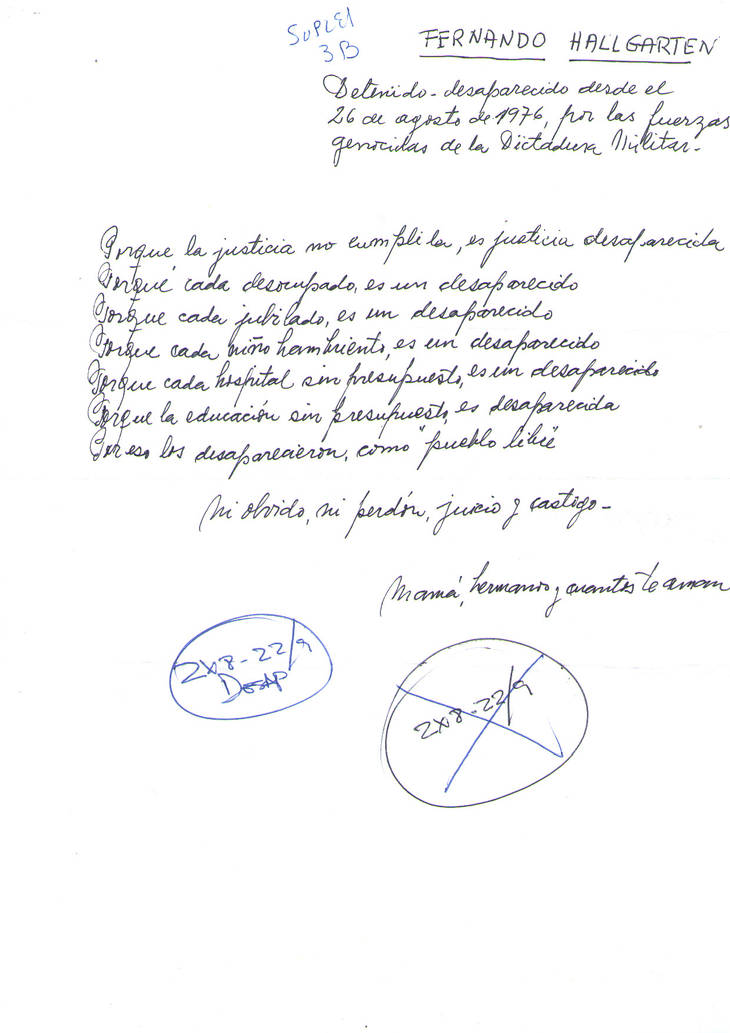 SUPLE1
3B
FERNANDO HALLGARTEN
Detenido-desaparecido desde el
26 de agosto de 1976, por las fuerzas
genocidas de la Dictadura Militar.-
Porque la justicia no cumplida, es justicia desaparecida
Porqué cada desocupado, es un desaparecido
Porque cada jubilado, es un desaparecido
Porque cada niño hambriento, es un desaparecido
Porque cada hospital sin presupuesto, es un desaparecido
Porque la educación sin presupuesto, es desaparecida
Por eso los desaparecieron, como "pueblo libre"
Ni olvido, ni perdón, juicio y castigo-
Mamá, hermanos y cuantos te aman
2x8-22/9
DESAP
2x8-22/9